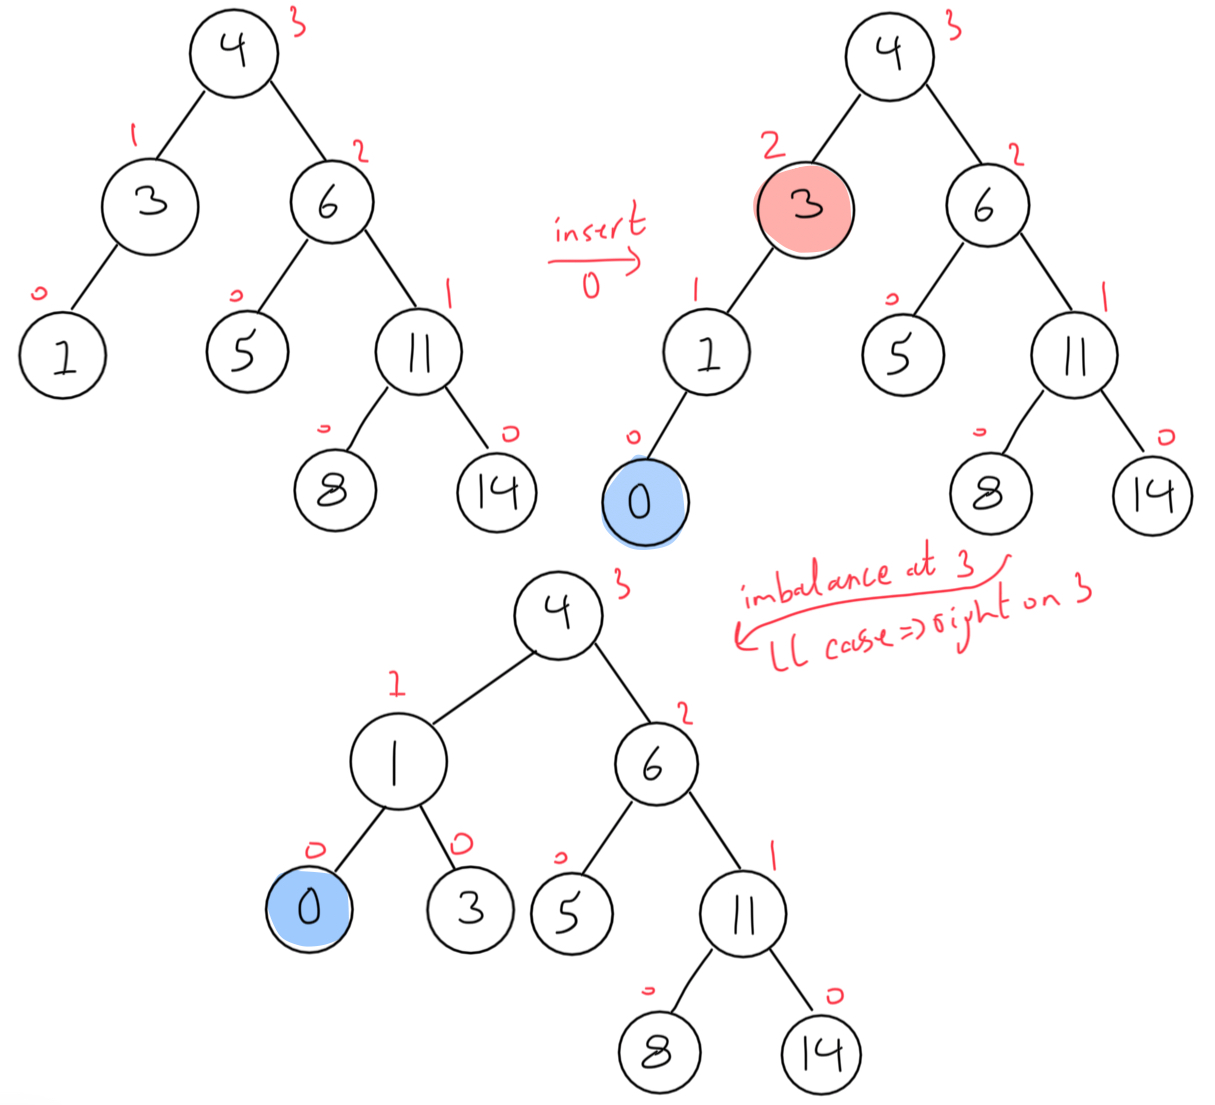 4 3
1
3
2
6
0
1
0
5
1
11
0
8
0
14
insert
0
4 3
2
3
2
6
1
1
0
5
1
11
0
0
0
8
0
14
imbalance at 3
LL case => right on 3
4 3
1
1
2
6
0
0
0
3
0
5
1
11
0
8
0
14